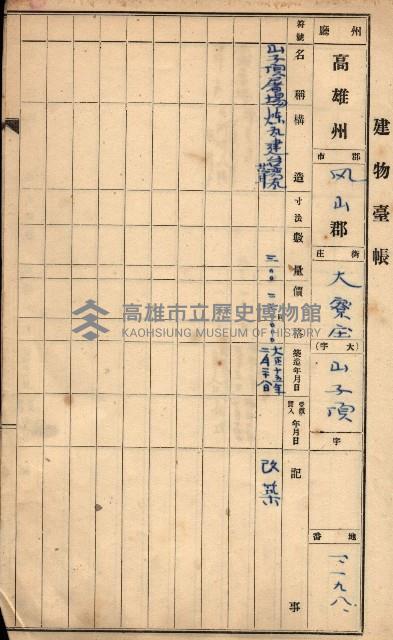 建物臺帳
州廳 高雄州 郡市 鳳山郡 街庄 大寮庄 (大字) 山子頂 字 地番 一一九八
符號 名稱 構造 寸法 數量 價格 築造年月日 年月日 記事
山子頂屠場 煉瓦建台湾瓦葺 三〇〇 大正十五年二月二十八日 改築
高雄市立歷史博物館
KAOHSIUNG MUSEUM OF HISTORY